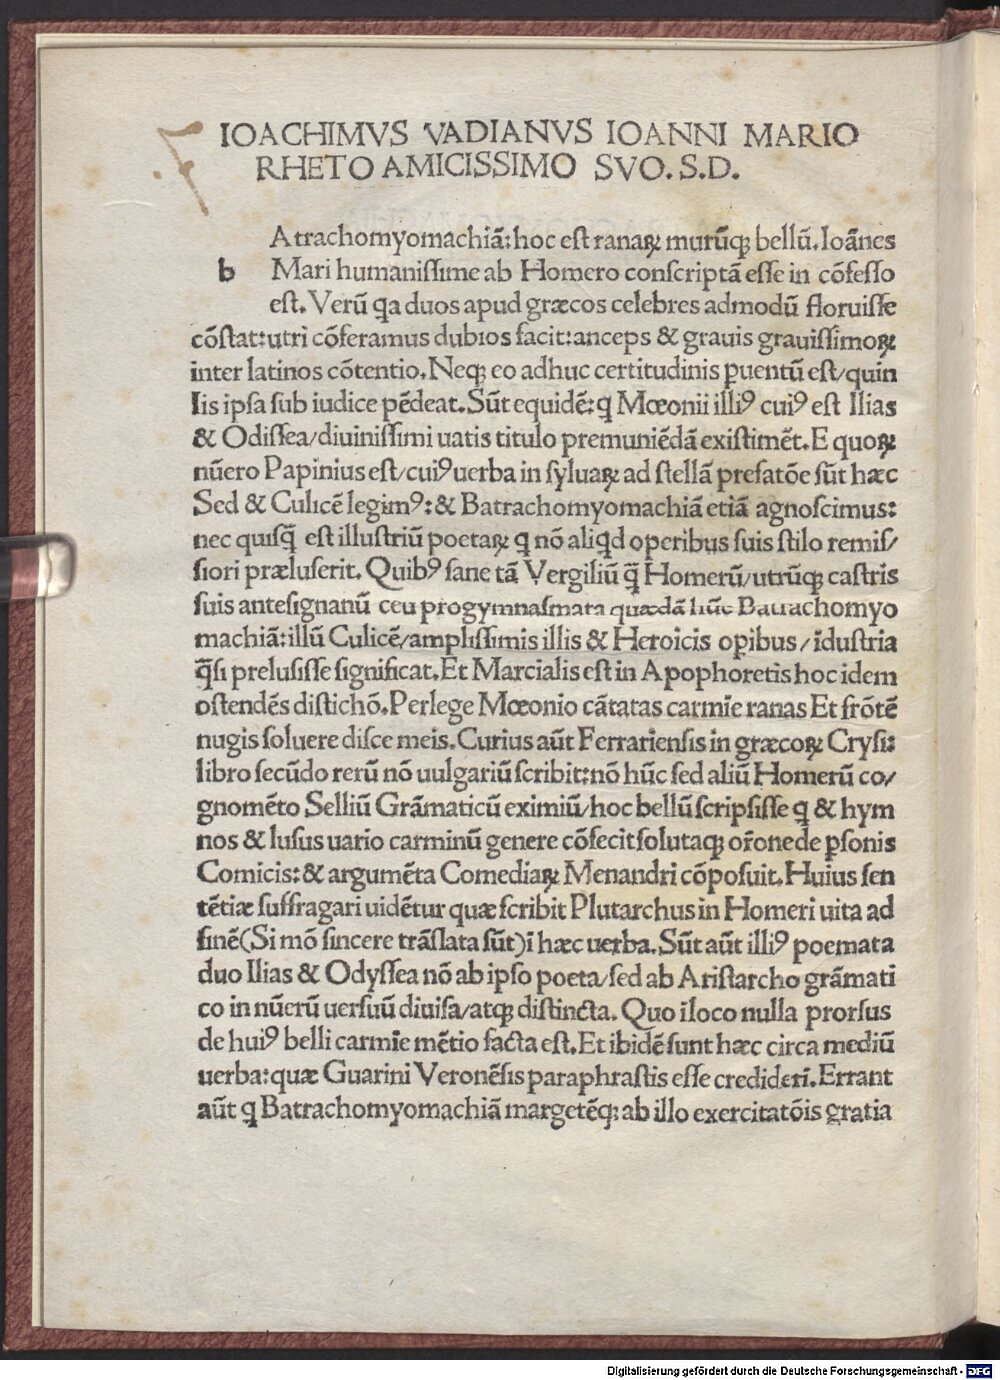 IOACHIMVS VADIANVS IOANNI MARIO
RHETO AMICISSIMO SVO. S.D.
Atrachomyomachiã: hoc est ranaꝝ murũqꝫ bellũ. Ioãnes
b Mari humaniſſime ab Homero conſcriptã eſſe in cõfeſſo
eſt. Verũ qa duos apud græcos celebres admodũ floruiſſe
cõſtat: utri cõferamus dubios facit: anceps & grauis grauiſſimoꝝ
inter latinos cõtentio. Neqꝫ eo adhuc certitudinis ꝑuentũ eſt/quin
lis ipſa ſub iudice pẽdeat. Sũt equidẽ: ꝗ Mœonii illiꝰ cuiꝰ eſt Ilias
& Odiſſea/diuiniſſimi uatis titulo premuniẽdã exiſtimẽt. E quoꝝ
nũero Papinius eſt/cuiꝰ uerba in ſyluaꝝ ad ſtellã prefatõe ſũt hæc
Sed & Culicẽ legimꝰ: & Batrachomyomachiã etiã agnoſcimus:
nec quiſꝗ̃ eſt illuſtriũ poetaꝝ ꝗ nõ aliqd operibus ſuis ſtilo remiſ/
ſiori præluſerit. Quibꝰ ſane tã Vergiliũ ꝗ̃ Homerũ/utrũqꝫ caſtris
ſuis anteſignanũ ceu progymnaſmata quædã hũc Batrachomyo
machiã: illũ Culicẽ/ampliſſimis illis & Heroicis oꝑibus/ĩduſtria
ꝗ̃ſi preluſiſſe ſignificat. Et Marcialis eſt in Apophoretis hoc idem
oſtendẽs diſtichõ. Perlege Mœonio cãtatas carmĩe ranas Et frõtẽ
nugis ſoluere diſce meis. Curius aũt Ferrarienſis in græcoꝝ Cryſi:
libro ſecũdo rerũ nõ uulgariũ ſcribit: nõ hũc ſed aliũ Homerũ co/
gnomẽto Selliũ Grãmaticũ eximiũ/hoc bellũ ſcripſiſſe ꝗ & hym
nos & luſus uario carminũ genere cõfecit ſolutaqꝫ or̃one de ꝑſonis
Comicis: & argumẽta Comediaꝝ Menandri cõpoſuit. Huius ſen
tẽtiæ ſuffragari uidẽtur quæ ſcribit Plutarchus in Homeri uita ad
finẽ (Si mõ ſincere trãſlata ſũt) ĩ hæc uerba. Sũt aũt illiꝰ poemata
duo Ilias & Odyſſea nõ ab ipſo poeta/ſed ab Ariſtarcho grãmati
co in nũerũ uerſuũ diuiſa/atqꝫ diſtincta. Quo ĩ loco nulla prorſus
de huiꝰ belli carmĩe mẽtio facta eſt. Et ibidẽ ſunt hæc circa mediũ
uerba: quæ Guarini Veronẽſis paraphraſtis eſſe credideri. Errant
aũt ꝗ Batrachomyomachiã margetẽqꝫ ab illo exercitatõis gratia
Digitalisierung gefördert durch die Deutsche Forschungsgemeinschaft - DFG